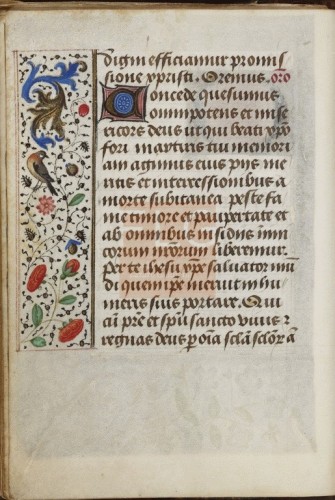 digni efficiamur promis
sione xpristi. Oremus. oro
Concede quesumus
omnipotens et mise
ricors deus ut qui beati xpo
fori martiris tui memori
am agimus eius piis me
ritis et intercessionibus a
morte subitanea peste fa
me timore et paupertate et
ab omnibus insidiis inim
corum nrorum liberemur.
Per te ihesu xpe saluator mu
di quem ipe meruit in hu
meris suis portare. Qui
cu pre et spu sancto uiuis z
regnas deus p oia scla sclor a